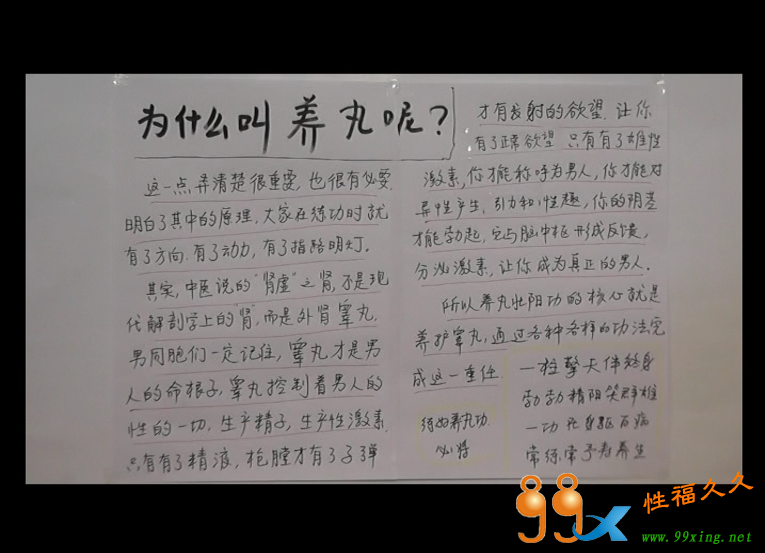 为什么叫养丸呢？
这一点弄清楚很重要，也很有必要。
明白了其中的原理，大家在练功时就
有了方向，有了动力，有了指路明灯。
其实，中医说的"肾虚"之肾，不是现
代解剖学上的"肾"，而是外肾睾丸，
男同胞们一定记住，睾丸才是男
人的命根子，睾丸控制着男人的
性的一切，生产精子，生产性激素
只有有了精液，枪膛才有了子弹
才有发射的欲望，让你
有了正常欲望 只有有了雄性
激素，你才能称呼为男人，你才能对
异性产生，引力和性趣，你的阴茎
才能勃起，它与脑中枢形成反馈，
分泌激素，让你成为真正的男人。
所以养丸壮阳功的核心就是
养护睾丸，通过各种各样的功法完
成这一重任
养丸功
必将
一柱擎天伴终身
勃勃精阳笑群雄
一功 百病
常练常 养生
99x
性福久久
www.99xing.net